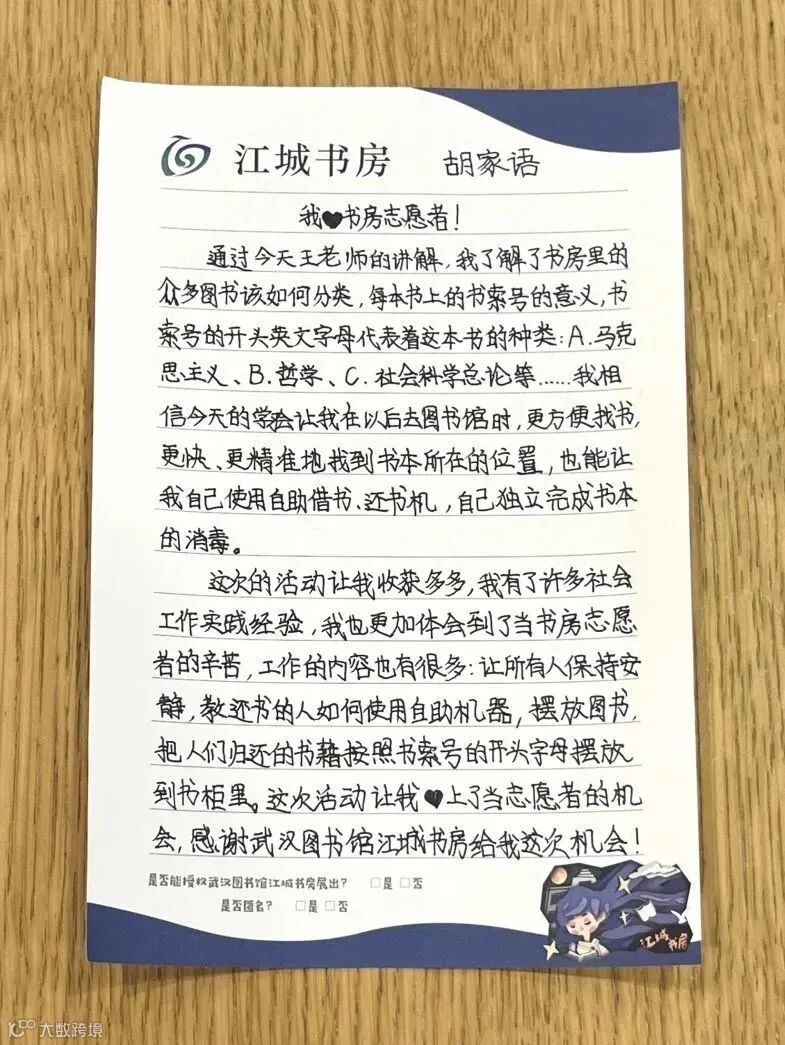 江城书房 胡家语
我♥书房志愿者!
通过今天王老师的讲解,我了解了书房里的
众多图书该如何分类,每本书上的书索号的意义,书
索号的开头英文字母代表着这本书的种类:A.马克
思主义、B.哲学、C.社会科学总论等……我相
信今天的学会让我在以后去图书馆时,更方便找书,
更快、更精准地找到书本所在的位置,也能让
我自己使用自助借书、还书机,自己独立完成书本
的消毒。
这次的活动让我收获多多,我有了许多社会
工作实践经验,我也更加体会到了当书房志愿
者的辛苦,工作的内容也有很多:让所有人保持安
静,教还书的人如何使用自助机器,摆放图书,
把人们归还的书籍按照书索号的开头字母摆放
到书柜里。这次活动让我♥上了当志愿者的机
会,感谢武汉图书馆江城书房给我这次机会!
是否能授权武汉图书馆江城书房展出? □是 □否
是否匿名? □是 □否
江城书房
大数跨境